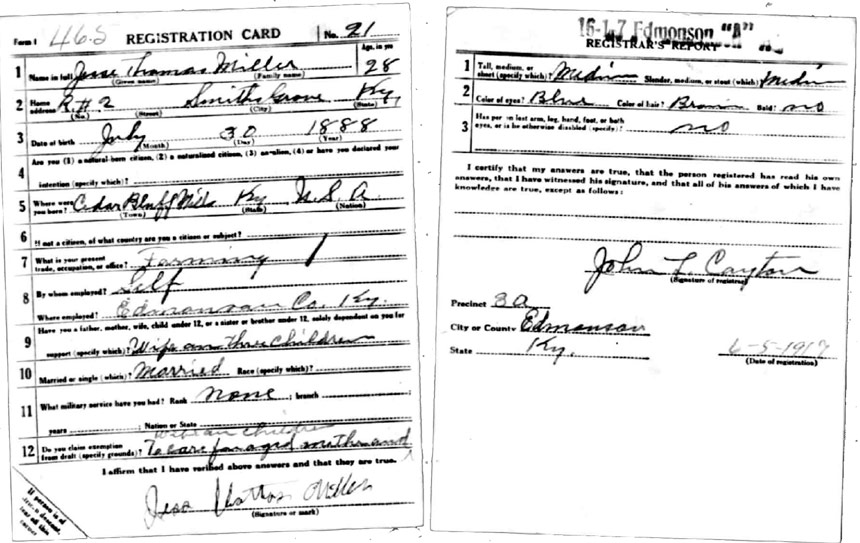 Form 1 465 REGISTRATION CARD No. 21
Age, in yrs
1 Name in full Jesse Thomas Miller 28
(Given name) (Family name)
2 Home address R.#2 Smiths Grove Ky.
(No.) (Street) (City) (State)
3 Date of birth July 30 1888
(Month) (Day) (Year)
4 Are you (1) a natural-born citizen, (2) a naturalized citizen, (3) an alien, (4) or have you declared your
intention (specify which)?
5 Where were you born? Cedar Bluff Mills Ky U.S.A
(Town) (State) (Nation)
6 If not a citizen, of what country are you a citizen or subject?
7 What is your present trade, occupation, or office? Farming
8 By whom employed? Self
Where employed? Edmonson Co. Ky.
9 Have you a father, mother, wife, child under 12, or a sister or brother under 12, solely dependent on you for
support (specify which)? Wife an three Children
10 Married or single (which)? Married Race (specify which)?
11 What military service have you had? Rank none ; branch ;
years ; Nation or State
12 Do you claim exemption from draft (specify grounds)? To care for aged mother and
I affirm that I have verified above answers and that they are true.
Jess Miller
(Signature or mark)
If person is of
16-1-7 Edmonson "A"
REGISTRAR'S REPORT
1 Tall, medium, or short (specify which)? Medium Slender, medium, or stout (which)? Medium
2 Color of eyes? Blue Color of hair? Brown Bald? no
3 Has person lost arm, leg, hand, foot, or both eyes, or is he otherwise disabled (specify)? no
I certify that my answers are true, that the person registered has read his own
answers, that I have witnessed his signature, and that all of his answers of which I have
knowledge are true, except as follows:
John L. Cayton
(Signature of registrar)
Precinct 3a
City or County Edmonson
State Ky. 6-5-1917
(Date of registration)